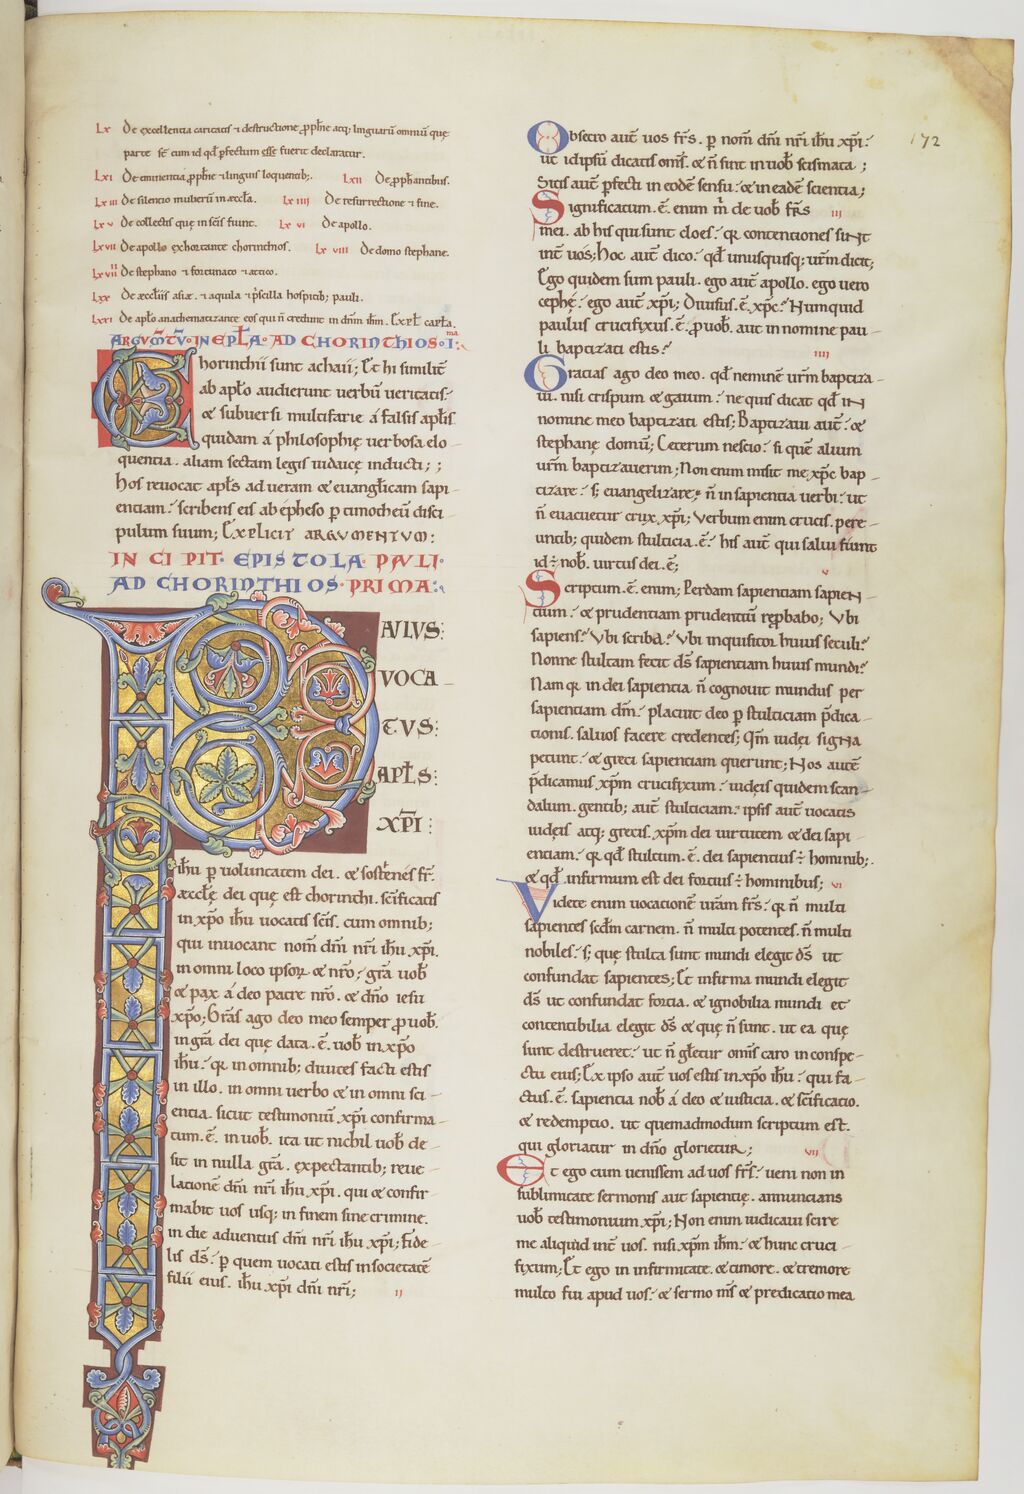 Lx De excellentia caritatis ⁊ destructione ꝓph̄ie atq; linguarū omniū quę
parte s̄t cum id qd̄ ꝑfectum esse fuerit declaratur.
Lxi De eminentia ꝓph̄ie ⁊ linguis loquentib;. Lxii De ꝓph̄antibus.
Lxiii De silentio mulierū in æccl̄a. Lxiiii De resurrectione ⁊ fine.
Lxv De collectis que in sc̄is fiunt. Lxvi De apollo.
Lxvii De apollo exhortante chorinthios. Lxviii De domo stephane.
Lxviiii De stephano ⁊ fortunato ⁊ acaico.
Lxx De æccl̄iis asiæ. ⁊ aquila ⁊ pͥscilla hospitib; pauli.
Lxxi De apl̄o anathematizante eos qui n̄ credunt in dn̄m ih̄m. Expl̄ capl̄a.
ARGVM̄TV̄ · IN EPL̄A · AD CHORINTHIOS · I·ma
Chorinthii sunt achaii; Et hi similit̄
ab apl̄o audierunt verbū veritatis.
& subuersi multifarie á falsis apl̄is
quidam á philosophię verbosa elo-
quentia. aliam sectam legis iudaicę inducti; ;
hos reuocat apl̄s ad ueram & euangl̄icam sapi-
entiam. scribens eis ab epheso ꝑ timotheū disci-
pulum suum; EXPLICIT ARGVMENTVM:
IN CI PIT · EPISTOLA · PAVLI·
AD CHORINTHIOS · PRIMA:
PAVLVS:
VOCA-
TVS:
APL̄S:
XP̄I:
ih̄u ꝑ uoluntatem dei. & sostenes fr̄.
æccl̄ę dei quę est chorinthi. sc̄ificatis
in xp̄o ih̄u uocatis sc̄is. cum omnib;
qui inuocant nom̄ dn̄i nr̄i ih̄u xp̄i.
in omni loco ipsoꝝ & nr̄o. gr̄a uob̄
& pax á deo patre nr̄o. & dn̄o iesu
xp̄o; Gr̄as ago deo meo semper ꝓ uob̄.
in gr̄a dei quę data .ē. uob̄ in xp̄o
ih̄u. qr̄ in omnib; diuites facti estis
in illo. in omni uerbo & in omni sci-
entia. sicut testimoniū xp̄i confirma-
tum .ē. in uob̄. ita ut nichil uob̄ de-
sit in nulla gr̄a. expectantib; reue-
lationē dn̄i nr̄i ih̄u xp̄i. qui & confir-
mabit uos usq; in finem sine crimine.
in die aduentus dn̄i nr̄i ih̄u xp̄i; Fide-
lis ds̄. ꝑ quem uocati estis in societatē
filii eius. ih̄u xp̄i dn̄i nr̄i; ii
172
Obsecro aut̄ uos fr̄s. ꝑ nom̄ dn̄i nr̄i ih̄u xp̄i.
ut idipsū dicatis oms̄. & n̄ sint in uob̄ scismata ;
Sitis aut̄ ꝑfecti in eodē sensu. & in eadē scientia;
Significatum .ē. enim m̄ de uob̄ fr̄s iii
mei. ab his qui sunt cloes. qr̄ contentiones sunt
int̄ uos; Hoc aut̄ dico. qd̄ unusquisq; ur̄m dicit;
Ego quidem sum pauli. ego aut̄ apollo. ego uero
cephę. ego aut̄ xp̄i; Diuisus .ē. xp̄c? Numquid
paulus crucifixus .ē. ꝓ uob̄. aut in nomine pau-
li baptizati estis? iiii
Gratias ago deo meo. qd̄ neminē ur̄m baptiza-
ui. nisi crispum & gaium. ne quis dicat qd̄ in
nomine meo baptizati estis; Baptizaui aut̄. &
stephanę domū; Ceterum nescio. si quē alium
ur̄m baptizauerim; Non enim misit me xp̄c bap-
tizare. s; euangelizare. n̄ in sapientia uerbi. ut
n̄ euacuetur crux xp̄i; Verbum enim crucis. pere-
untib; quidem stulticia .ē. his aut̄ qui salui fiunt
id ÷ nob̄. uirtus dei .ē; v
Scriptum .ē. enim; Perdam sapientiam sapien-
tium. & prudentiam prudentiū reꝓbabo; Vbi
sapiens? Vbi scriba? Vbi inquisitor huius seculi?
Nonne stultam fecit ds̄ sapientiam huius mundi?
Nam qr̄ in dei sapientia n̄ cognouit mundus per
sapientiam dm̄. placuit deo ꝑ stulticiam p̄dica-
tionis. saluos facere credentes; Qm̄ iudei signa
petunt. & greci sapientiam querunt; Nos autē
p̄dicamus xp̄m crucifixum. iudęis quidem scan-
dalum. gentib; aut̄ stulticiam. ipsis aut̄ uocatis
iudęis atq; grecis. xp̄m dei uirtutem & dei sapi-
entiam. qr̄ qd̄ stultum .ē. dei sapientius ÷ hominib;.
& qd̄ infirmum est dei fortius ÷ hominibus; vi
Videte enim uocationē ur̄am fr̄s. qr̄ n̄ multi
sapientes scd̄m carnem. n̄ multi potentes. n̄ multi
nobiles. s; quę stulta sunt mundi elegit ds̄ ut
confundat sapientes; Et infirma mundi elegit
ds̄ ut confundat fortia. & ignobilia mundi et
contentibilia elegit ds̄ & quę n̄ sunt. ut ea quę
sunt destrueret. ut n̄ gl̄etur omis̄ caro in conspe-
ctu eius; Ex ipso aut̄ uos estis in xp̄o ih̄u. qui fa-
ctus .ē. sapientia nob̄ á deo & iusticia. & sc̄ificatio.
& redemptio. ut quemadmodum scriptum est.
qui gloriatur in dn̄o glorietur; vii
Et ego cum venissem ad uos fr̄s. ueni non in
sublimitate sermonis aut sapientię. annuncians
uob̄ testimonium xp̄i; Non enim iudicaui scire
me aliquid int̄ uos. nisi xp̄m ih̄m. & hunc cruci-
fixum; Et ego in infirmitate. & timore. & tremore
multo fui apud uos. & sermo ms̄ & predicatio mea